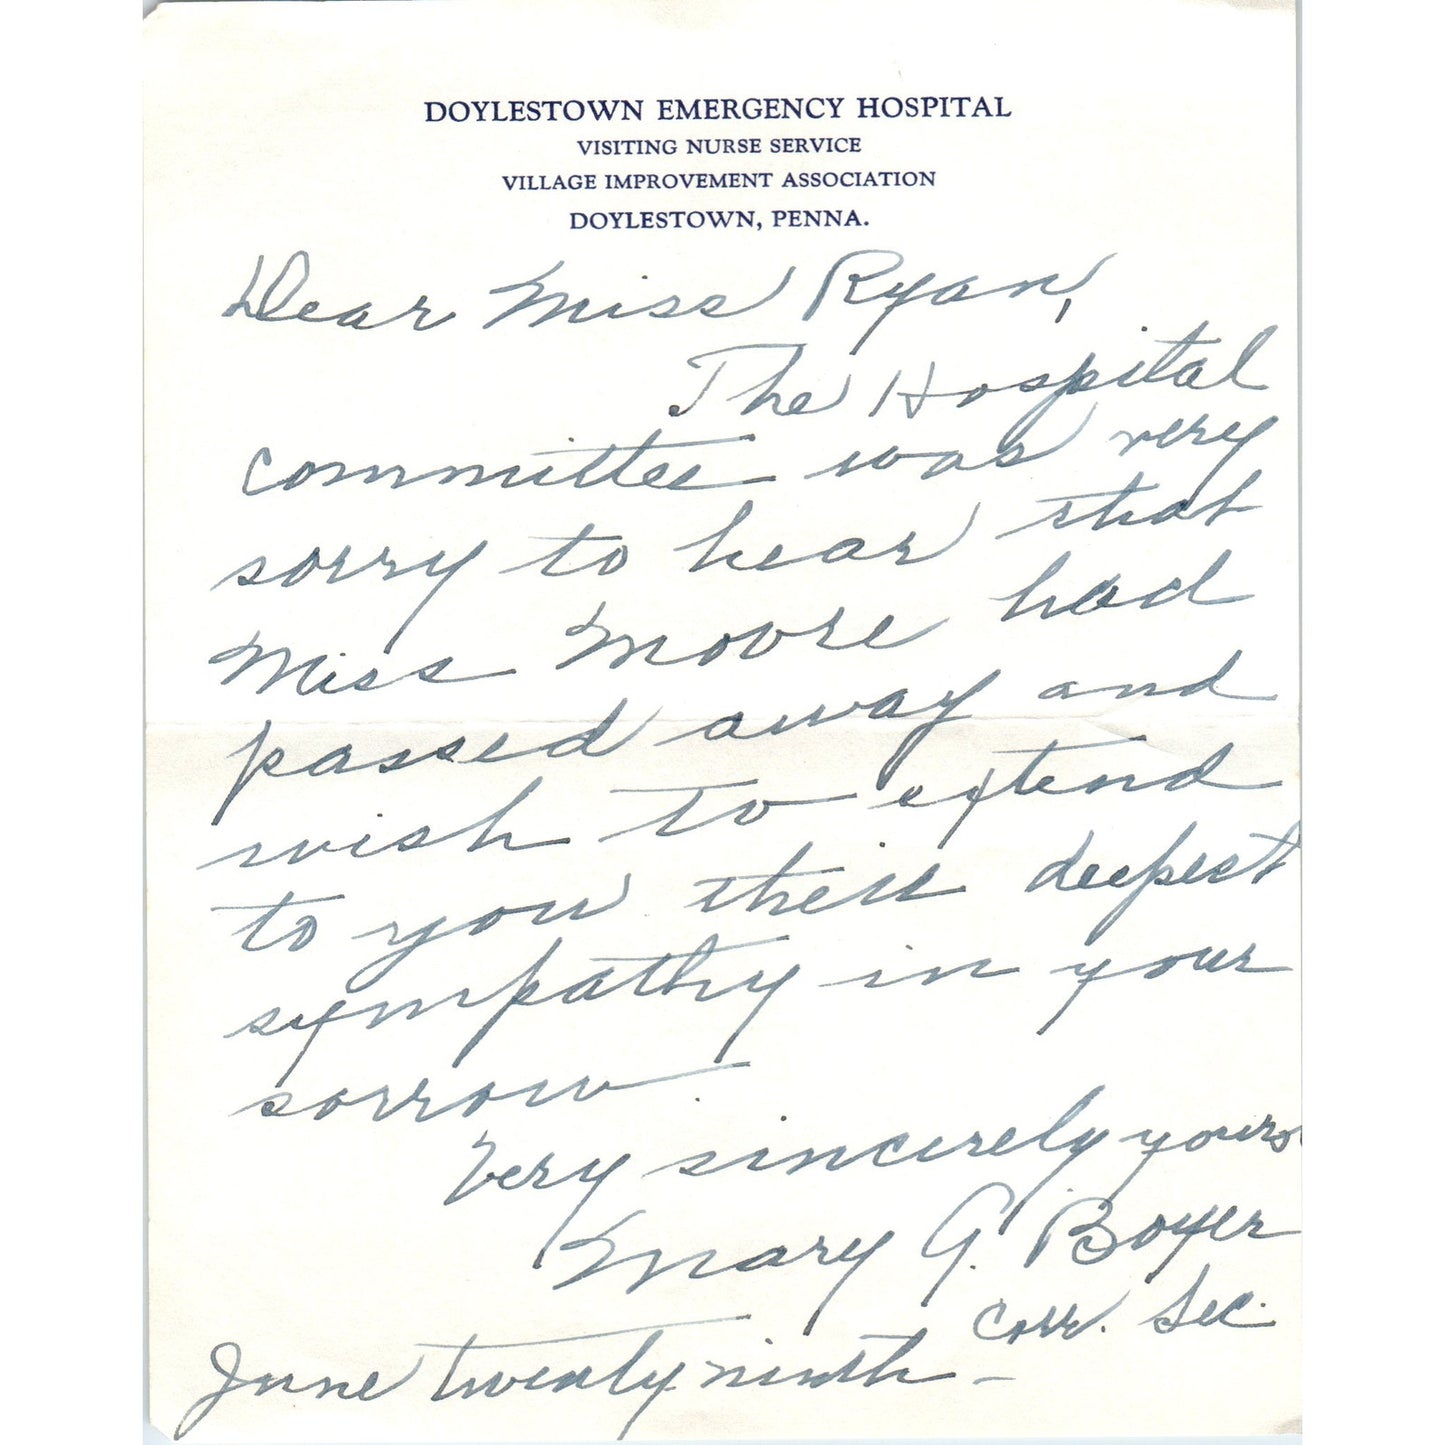 DOYLESTOWN EMERGENCY HOSPITAL
VISITING NURSE SERVICE
VILLAGE IMPROVEMENT ASSOCIATION
DOYLESTOWN, PENNA.
Dear Miss Ryan,
The Hospital
committee was very
sorry to hear that
Miss Moore had
passed away and
wish to extend
to you their deepest
sympathy in your
sorrow.
Very sincerely yours
Mary G. Boyer
Corr. Sec.
June twenty ninth -